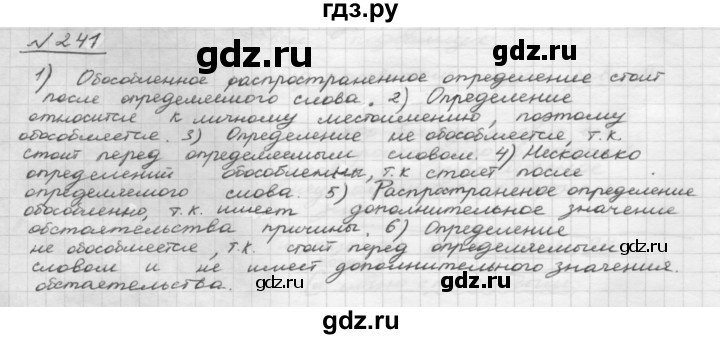 гдз.ру
№ 241
gdz.ru gdz.ru
1) Обособленное распространенное определение стоит
после определяемого слова. 2) Определение
относится к личному местоимению, поэтому
обособляется. 3) Определение не обособляется, т.к.
стоит перед определяемым словом. 4) Несколько
определений обособлены, т.к стоят после
определяемого слова. 5) Распространеное определение
обособленно, т.к. имеет дополнительное значение
обстаятельства причины. 6) Определение
не обособляется, т.к. стоит перед определяемым
словом и не имеет дополнительного значения.
обстаетельства.
gdz.ru
gdz.ru
gdz.ru
gdz.ru
gdz.ru
gdz.ru
гдз.ру